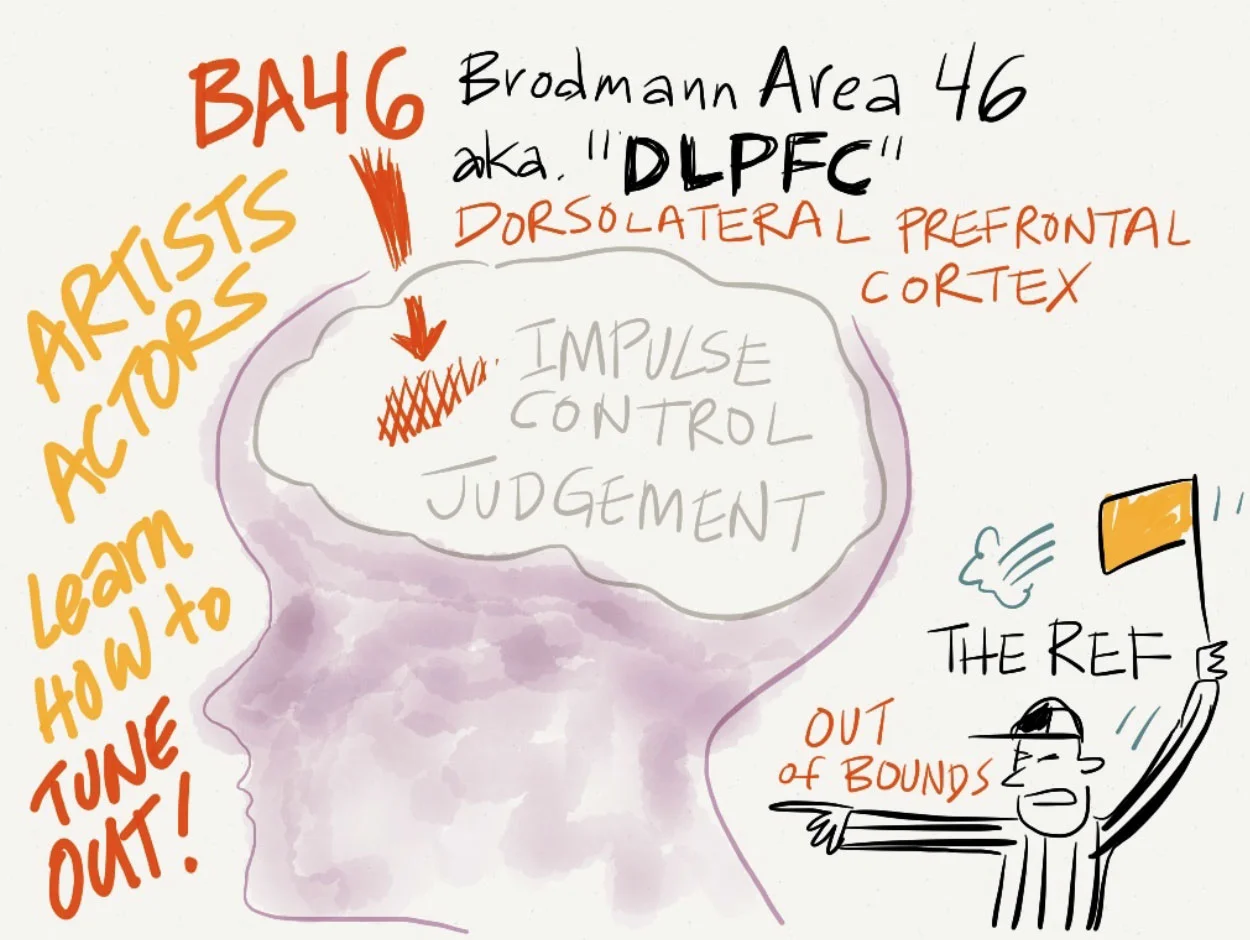 BA46
Brodmann Area 46
aka. "DLPFC"
DORSOLATERAL PREFRONTAL
CORTEX
ARTISTS
ACTORS
Learn
How to
TUNE
OUT!
IMPULSE
CONTROL
JUDGEMENT
THE REF
OUT
of BOUNDS